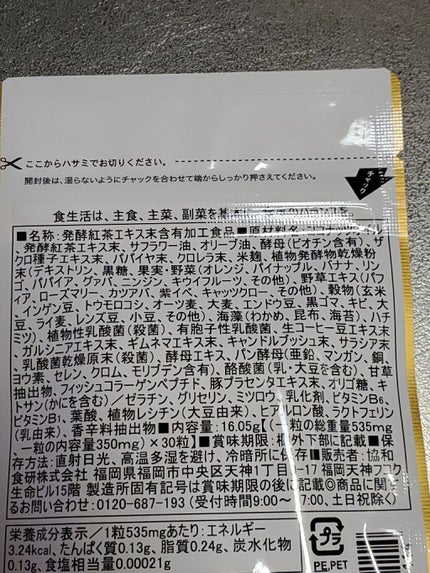 ここからハサミでお切りください。
開封後は、湿らないようにチャックを合わせて端からしっかり押さえてください。
チャック
食生活は、主食、主菜、副菜を基
■名称:発酵紅茶エキス末含有加工食品■原材料名:
発酵紅茶エキス末、サフラワー油、オリーブ油、酵母(ビオチン含有)、ザ
クロ種子エキス末、パパイヤ末、クロレラ末、米麹、植物発酵物乾燥粉
末(デキストリン、黒糖、果実・野菜(オレンジ、パイナップル、バナナ、リン
ゴ、パパイア、グァバ、ニンジン、キウイフルーツ、その他)、野草エキス(バフ
ィア、ローズマリー、カツアバ、紫イペ、キャッツクロー、その他)、穀物(玄米
、インゲン豆、トウモロコシ、オーツ麦、大麦、エンドウ豆、黒ゴマ、キビ、大
豆、ライ麦、レンズ豆、小豆、その他)、海藻(わかめ、昆布、海苔)、ハチ
ミツ)、植物性乳酸菌(殺菌)、有胞子性乳酸菌、生コーヒー豆エキス末
、ガルシニアエキス末、ギムネマエキス末、キャンドルブッシュ末、サラシア末
、乳酸菌乾燥原末(殺菌)、酵母エキス、パン酵母(亜鉛、マンガン、銅、
ヨウ素、セレン、クロム、モリブデン含有)、酪酸菌(乳・大豆を含む)、甘草
抽出物、フィッシュコラーゲンペプチド、豚プラセンタエキス末、オリゴ糖、キ
トサン(かにを含む)/ゼラチン、グリセリン、ミツロウ、乳化剤、ビタミンB6、
ビタミンB1、葉酸、植物レシチン(大豆由来)、ヒアルロン酸、ラクトフェリン
(乳由来)、香辛料抽出物■内容量:16.05g【(一粒の総重量535mg
、一粒の内容量350mg)×30粒】■賞味期限:枠外下部に記載■保
存方法:直射日光、高温多湿を避け、冷暗所に保存■販売者:協和
食研株式会社 福岡県福岡市中央区天神1丁目 -17 福岡天神フコク
生命ビル15階 製造所固有記号は賞味期限の後に記載◎商品に関す
るお問い合わせ:0120-687-193(受付時間9:00～17:00、土日祝除く)
栄養成分表示/1粒535mgあたり:エネルギー
3.24kcal、たんぱく質0.13g、脂質0.24g、炭水化物
0.13g、食塩相当量0.00021g
プラ
PE,PET